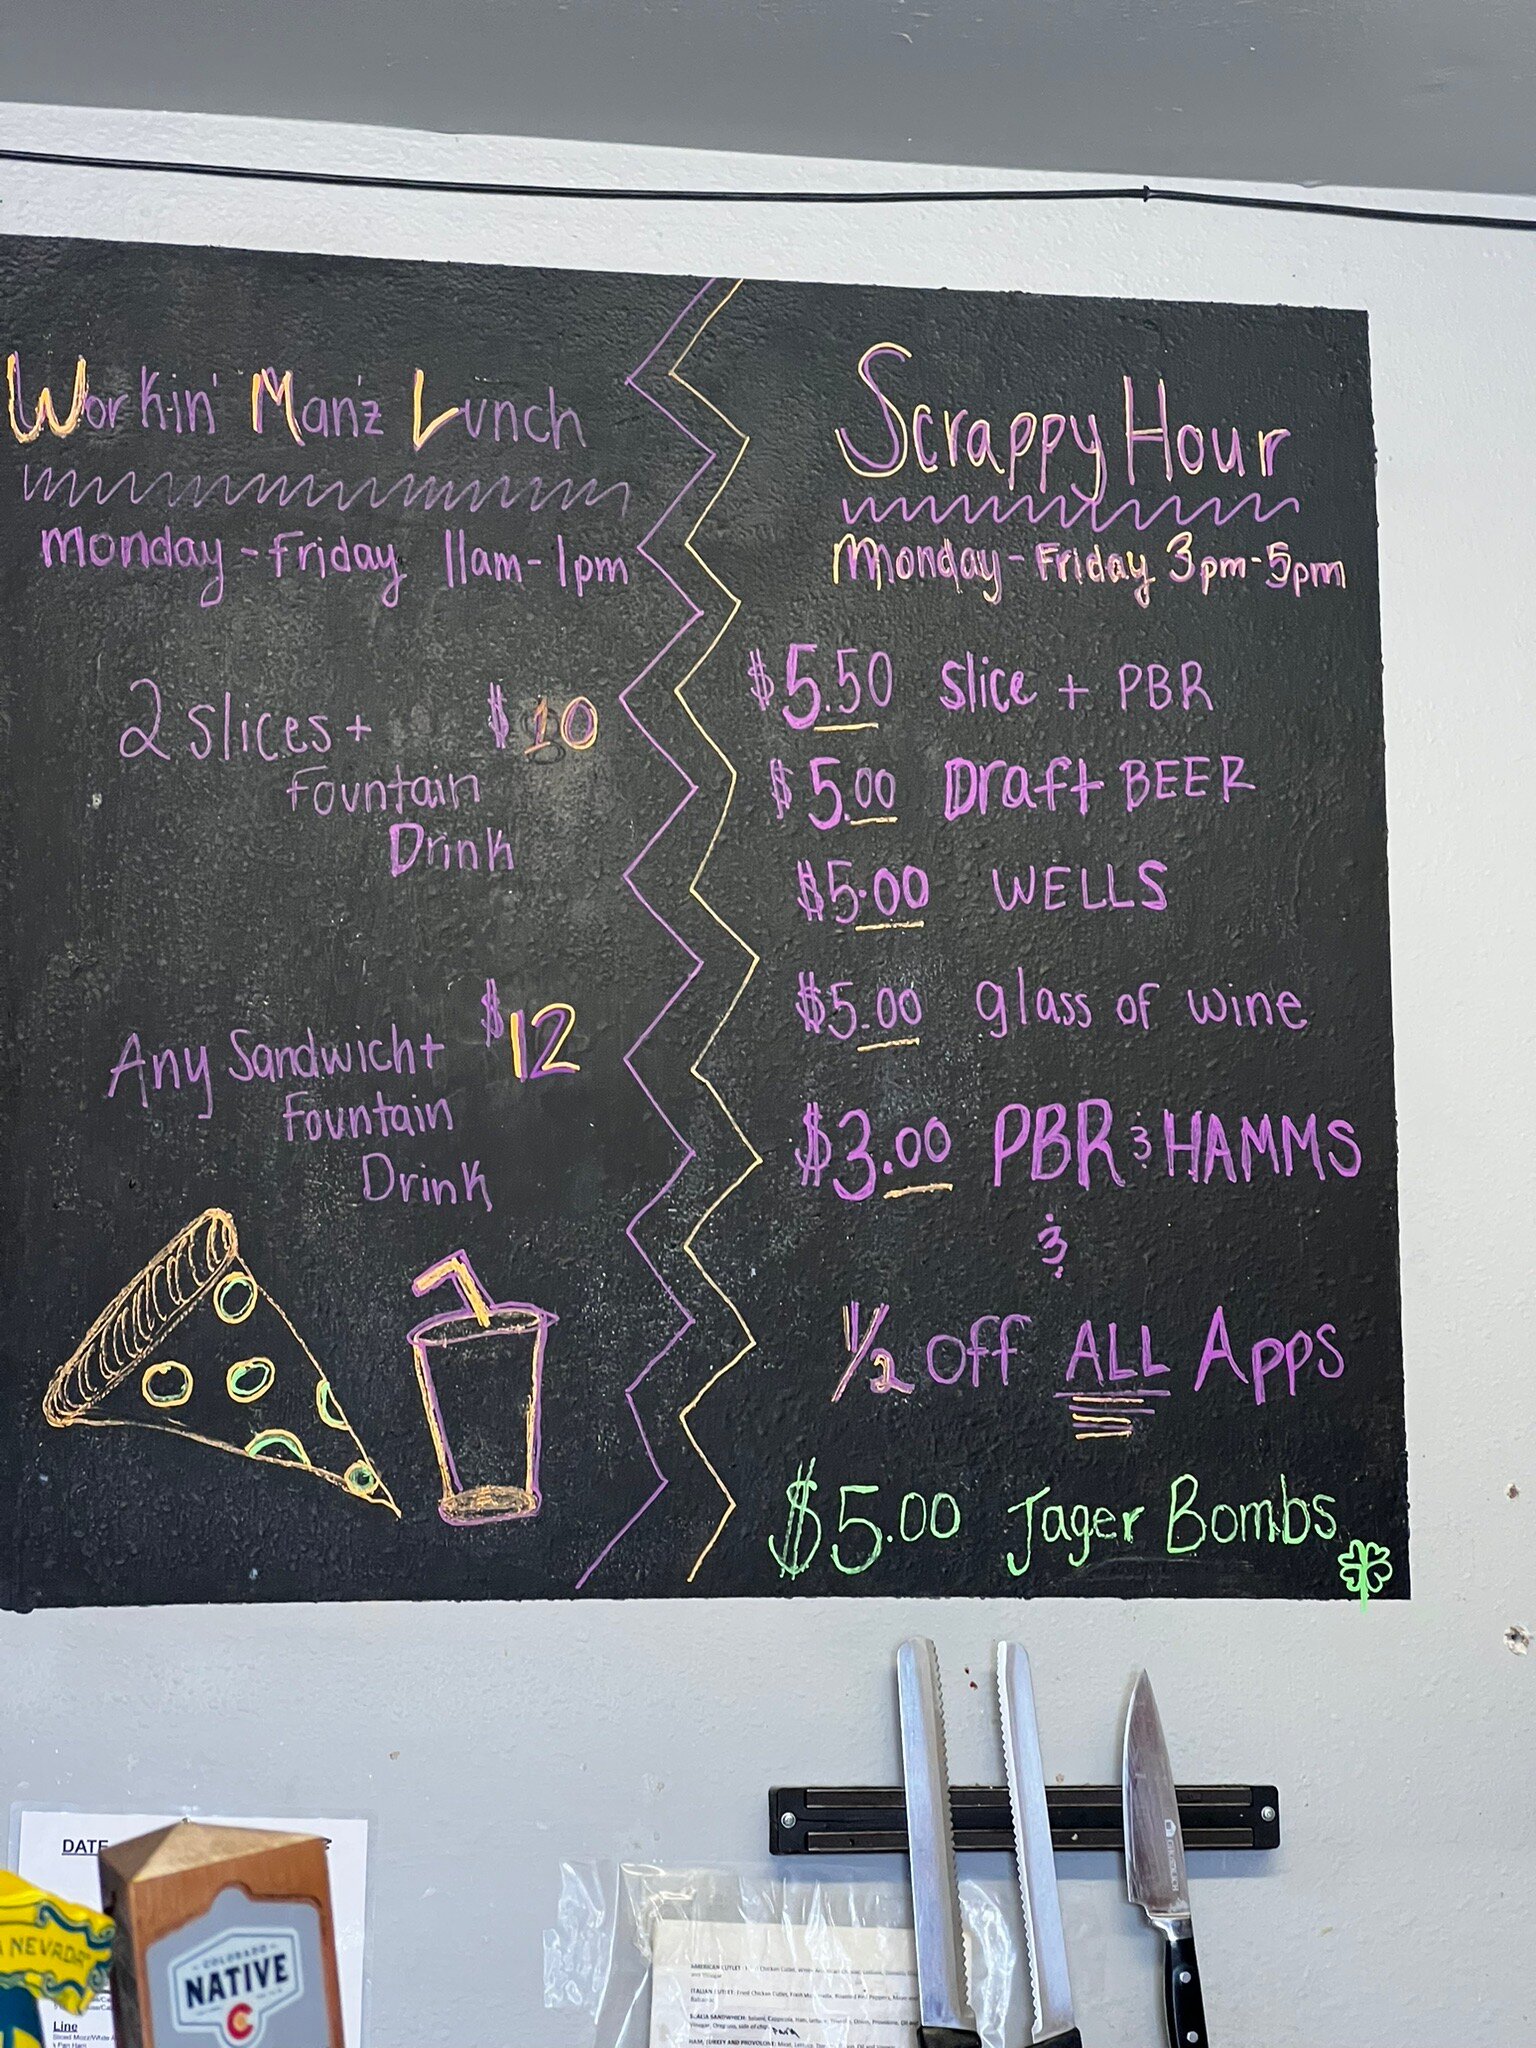 Workin' Man'z Lunch
Monday - Friday 11am - 1pm
2 Slices + $10
Fountain
Drink
Any Sandwich + $12
Fountain
Drink
Scrappy Hour
Monday - Friday 3pm - 5pm
$5.50 slice + PBR
$5.00 Draft BEER
$5.00 WELLS
$5.00 glass of wine
$3.00 PBR & HAMMS
&
1/2 Off ALL Apps
$5.00 Jager Bombs
DATE
NEVADA
COLORADO
NATIVE
C
Line
AMERICAN CUTLET:
and Vinegar
ITALIAN CUTLET: Fried Chicken Cutlet, Fresh Mozzarella, Roasted Red Peppers,
Balsamic
Vinegar, Oregano, side of chips
HAM, TURKEY AND PROVOLONE: